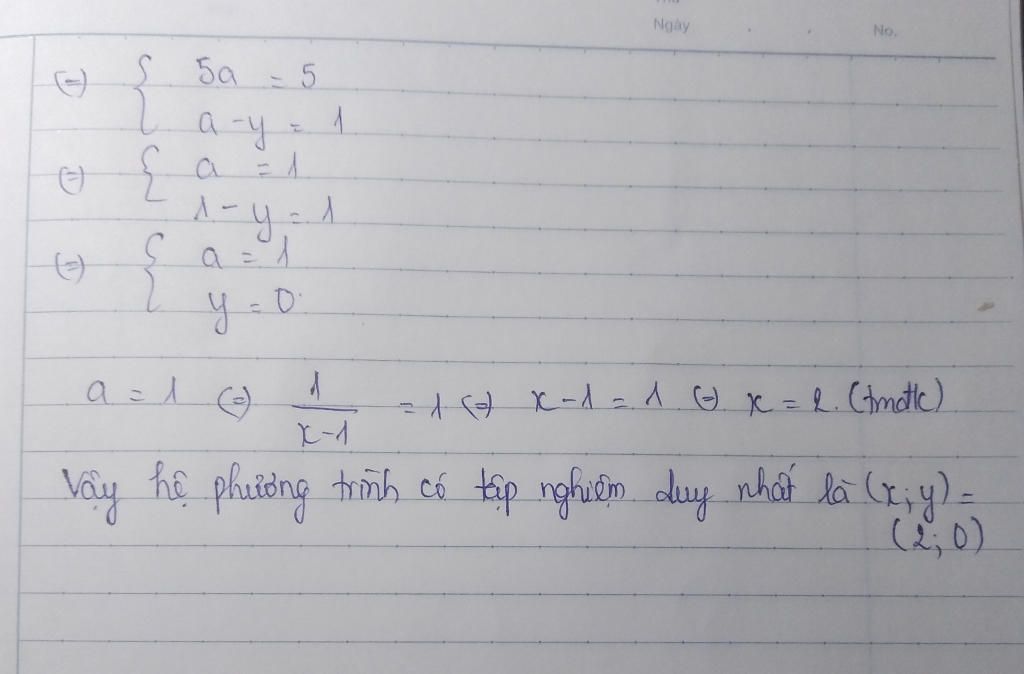 Ngày . . No.
(=) { 5a = 5
a - y = 1
(=) { a = 1
1 - y = 1
(=) { a = 1
y = 0.
a = 1 (=) 1/(x-1) = 1 (=) x - 1 = 1 (=) x = 2. (tmđk)
Vậy hệ phương trình có tập nghiệm duy nhất là (x; y) =
(2; 0)